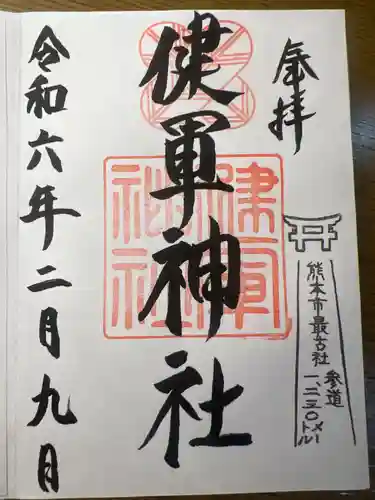 奉拝
熊本市最古社
参道
一、二三〇メートル
健軍神社
健軍神社
令和六年二月九日